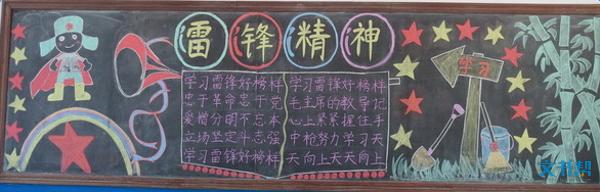 雷锋精神
学习雷锋好榜样
忠于革命忠于党
爱憎分明不忘本
立场坚定斗志强
学习雷锋好榜样
学习雷锋好榜样
毛主席的教导记
心上紧紧握住手
中枪努力学习天
天向上天天向上
学习
文书帮